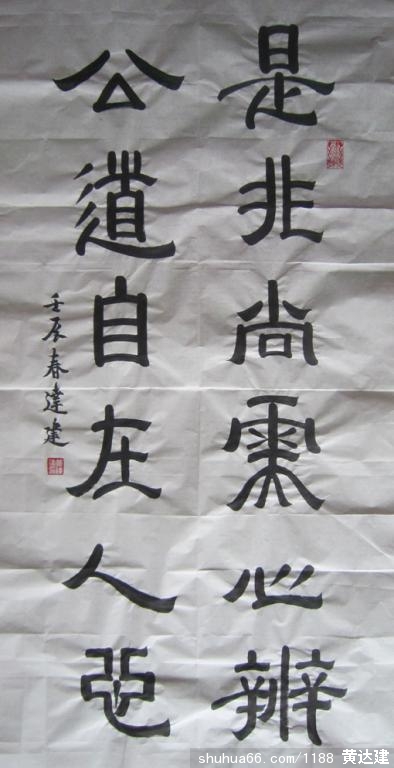 是非尚需心辨
公道自在人
壬辰春達建
shuhua66.com/1188 黄达建